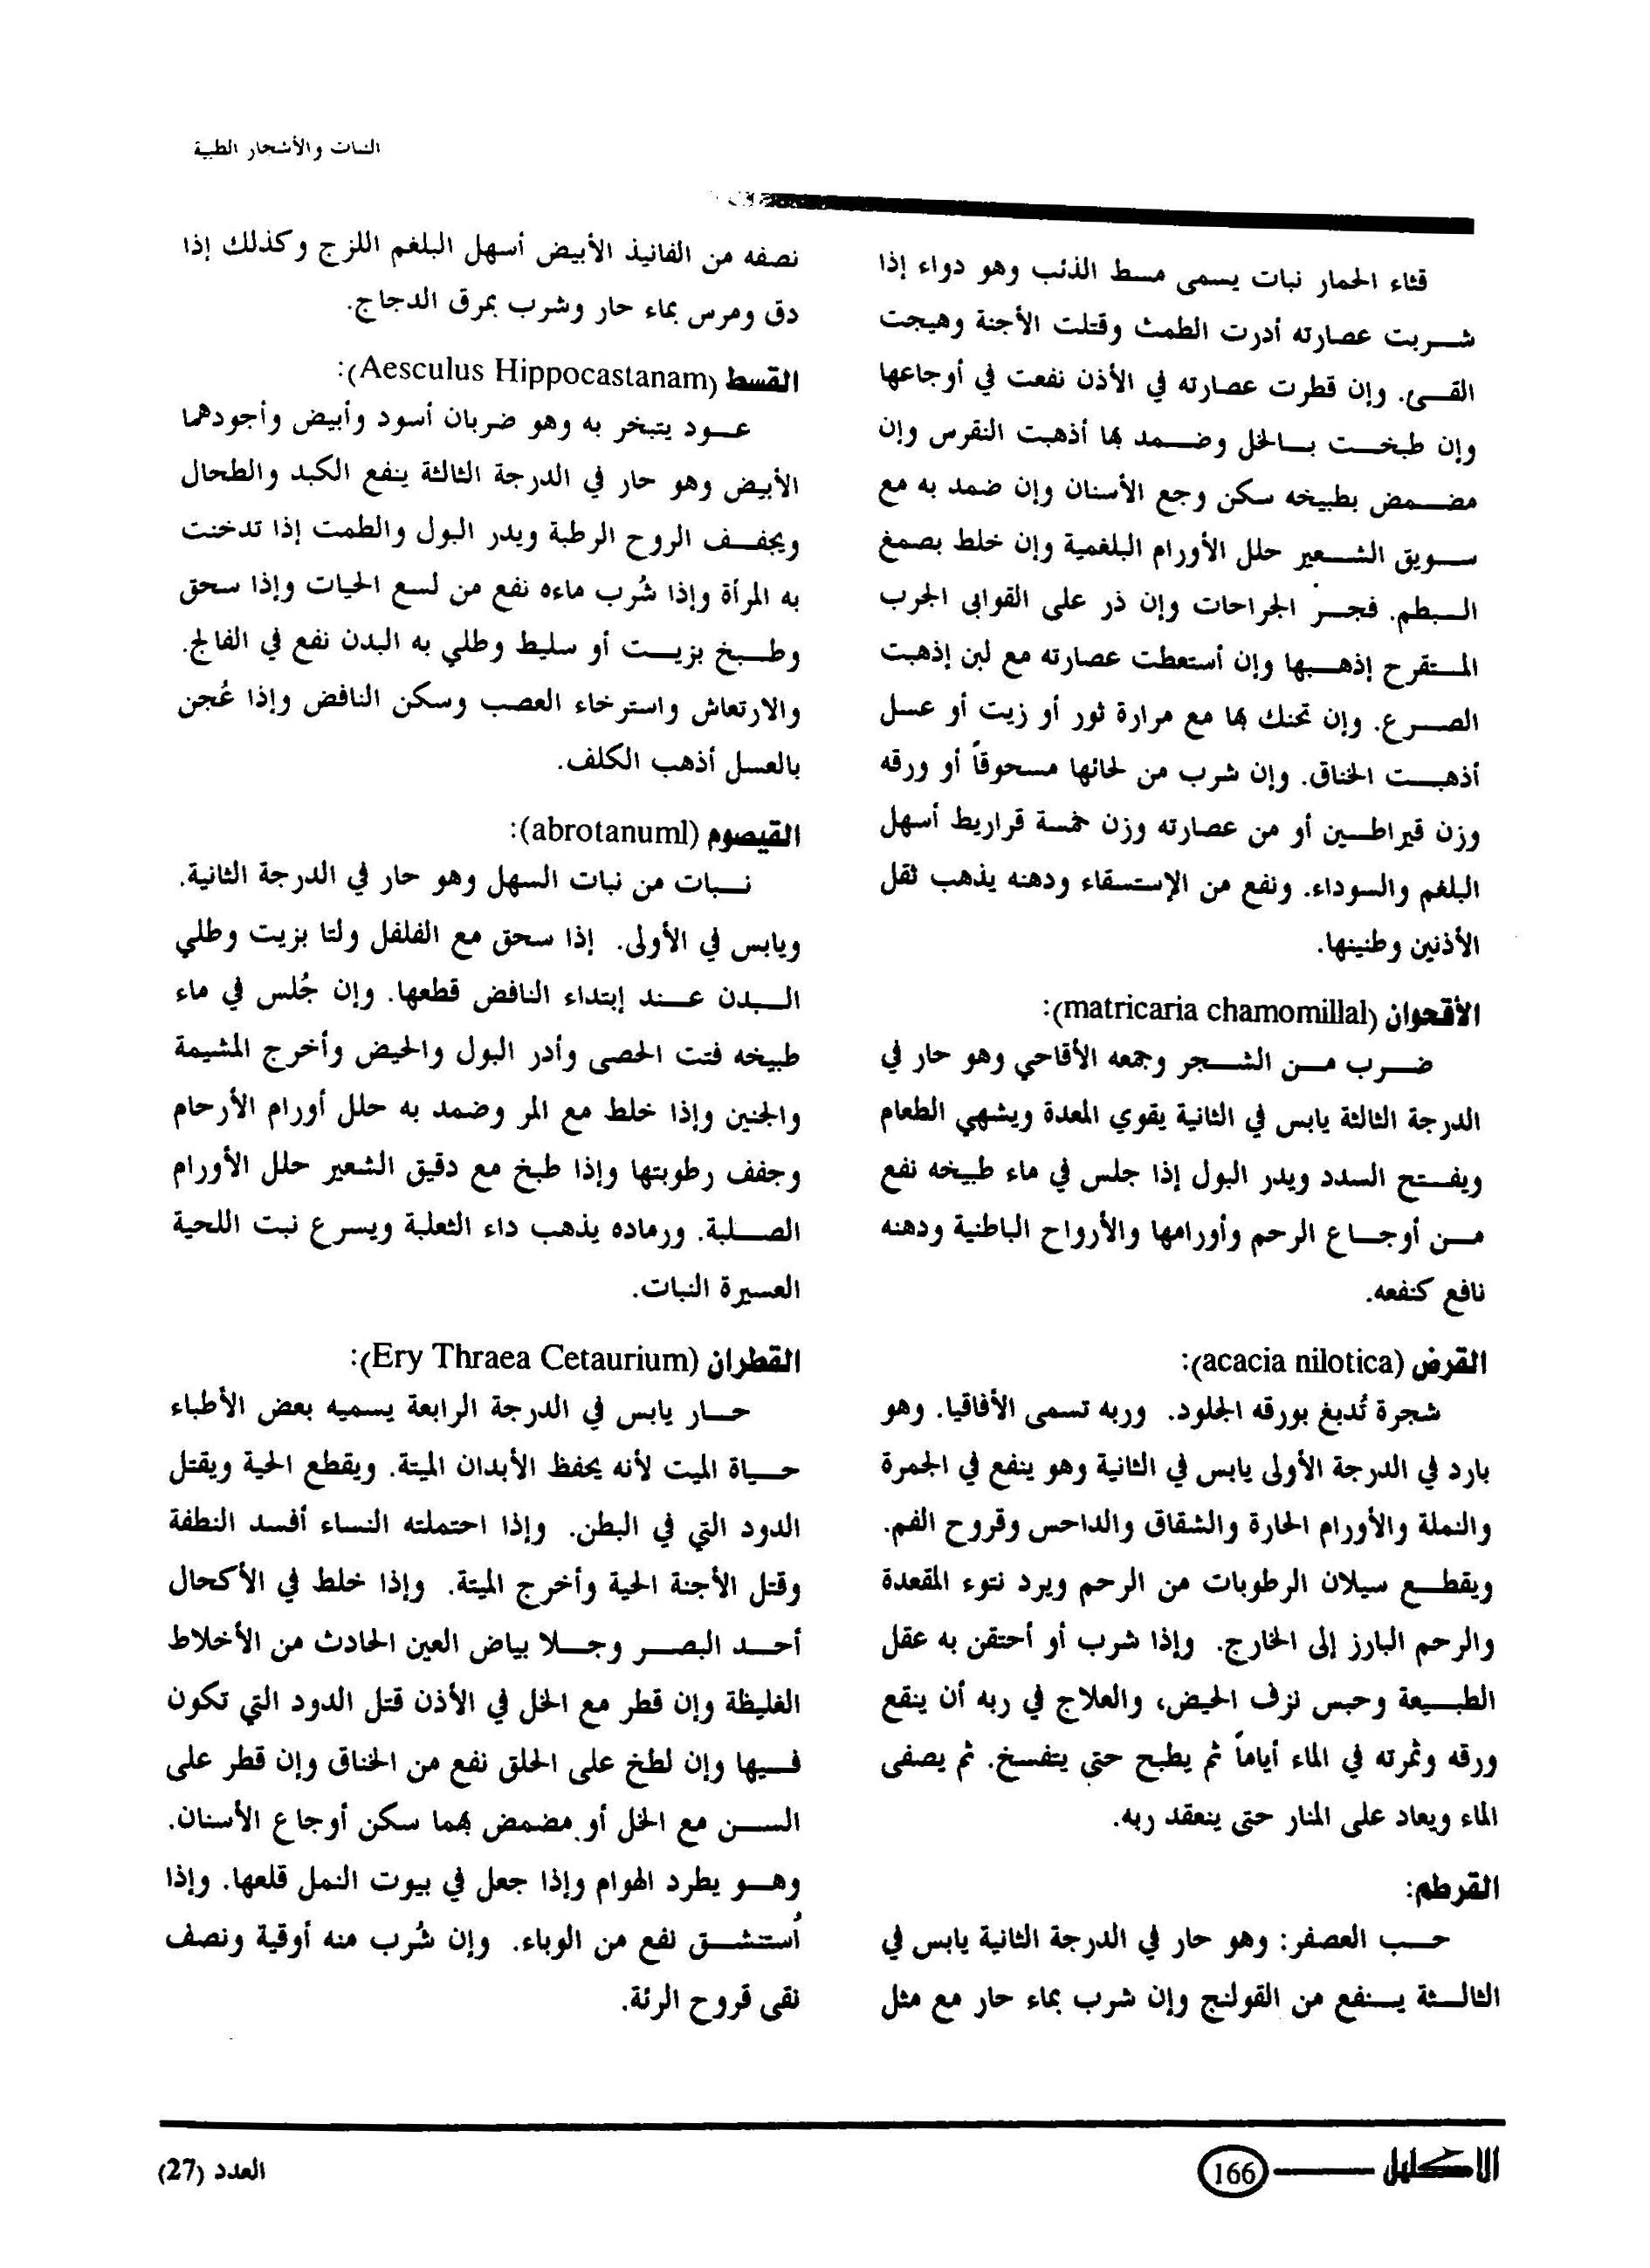 النبات والأشجار الطبية
قثاء الحمار نبات يسمى مسط الذئب وهو دواء إذا
شربت عصارته أدرت الطمث وقتلت الأجنة وهيجت
القئ. وإن قطرت عصارته في الأذن نفعت في أوجاعها
وإن طبخت بالخل وضمد بها أذهبت النقرس وإن
مضمض بطبيخه سكن وجع الأسنان وإن ضمد به مع
سويق الشعير حلل الأورام البلغمية وإن خلط بصمغ
البطم. فجر الجراحات وإن ذر على القوابى الجرب
المتقرح إذهبها وإن أستعطت عصارته مع لبن إذهبت
الصرع. وإن تحنك بها مع مرارة ثور أو زيت أو عسل
أذهبت الخناق. وإن شرب من لحائها مسحوقاً أو ورقه
وزن قيراطين أو من عصارته وزن خمسة قراريط أسهل
البلغم والسوداء. ونفع من الإستسقاء ودهنه يذهب ثقل
الأذنين وطنينها.
الأقحوان (matricaria chamomillal):
ضرب من الشجر وجمعه الأقاحي وهو حار في
الدرجة الثالثة يابس في الثانية يقوي المعدة ويشهي الطعام
ويفتح السدد ويدر البول إذا جلس في ماء طبيخه نفع
من أوجاع الرحم وأورامها والأرواح الباطنية ودهنه
نافع كنفعه.
القرض (acacia nilotica):
شجرة تُدبغ بورقه الجلود. وربه تسمى الأفاقيا. وهو
بارد في الدرجة الأولى يابس في الثانية وهو ينفع في الجمرة
والنملة والأورام الحارة والشقاق والداحس وقروح الفم.
ويقطع سيلان الرطوبات من الرحم ويرد نتوء المقعدة
والرحم البارز إلى الخارج. وإذا شرب أو أحتقن به عقل
الطبيعة وحبس نزف الحيض، والعلاج في ربه أن ينقع
ورقه وثمرته في الماء أياماً ثم يطبح حتى يتفسخ. ثم يصفى
الماء ويعاد على المنار حتى ينعقد ربه.
القرطم:
حب العصفر: وهو حار في الدرجة الثانية يابس في
الثالثة ينفع من القولنج وإن شرب بماء حار مع مثل
نصفه من الفانيذ الأبيض أسهل البلغم اللزج وكذلك إذا
دق ومرس بماء حار وشرب بمرق الدجاج.
القسط (Aesculus Hippocastanam):
عود يتبخر به وهو ضربان أسود وأبيض وأجودهما
الأبيض وهو حار في الدرجة الثالثة ينفع الكبد والطحال
ويجفف الروح الرطبة ويدر البول والطمت إذا تدخنت
به المرأة وإذا شُرب ماءه نفع من لسع الحيات وإذا سحق
وطبخ بزيت أو سليط وطلي به البدن نفع في الفالج.
والارتعاش واسترخاء العصب وسكن النافض وإذا عُجن
بالعسل أذهب الكلف.
القيصوم (abrotanuml):
نبات من نبات السهل وهو حار في الدرجة الثانية.
ويابس في الأولى. إذا سحق مع الفلفل ولتا بزيت وطلي
البدن عند إبتداء النافض قطعها. وإن جُلس في ماء
طبيخه فتت الحصى وأدر البول والحيض وأخرج المشيمة
والجنين وإذا خلط مع المر وضمد به حلل أورام الأرحام
وجفف رطوبتها وإذا طبخ مع دقيق الشعير حلل الأورام
الصلبة. ورماده يذهب داء الثعلبة ويسرع نبت اللحية
العسيرة النبات.
القطران (Ery Thraea Cetaurium):
حار يابس في الدرجة الرابعة يسميه بعض الأطباء
حياة الميت لأنه يحفظ الأبدان الميتة. ويقطع الحية ويقتل
الدود التي في البطن. وإذا احتملته النساء أفسد النطفة
وقتل الأجنة الحية وأخرج الميتة. وإذا خلط في الأكحال
أحد البصر وجلا بياض العين الحادث من الأخلاط
الغليظة وإن قطر مع الخل في الأذن قتل الدود التي تكون
فيها وإن لطخ على الحلق نفع من الخناق وإن قطر على
السن مع الخل أو مضمض بهما سكن أوجاع الأسنان.
وهو يطرد الهوام وإذا جعل في بيوت النمل قلعها. وإذا
أُستنشق نفع من الوباء. وإن شُرب منه أوقية ونصف
نقى قروح الرئة.
الإكليل 166
العدد (27)